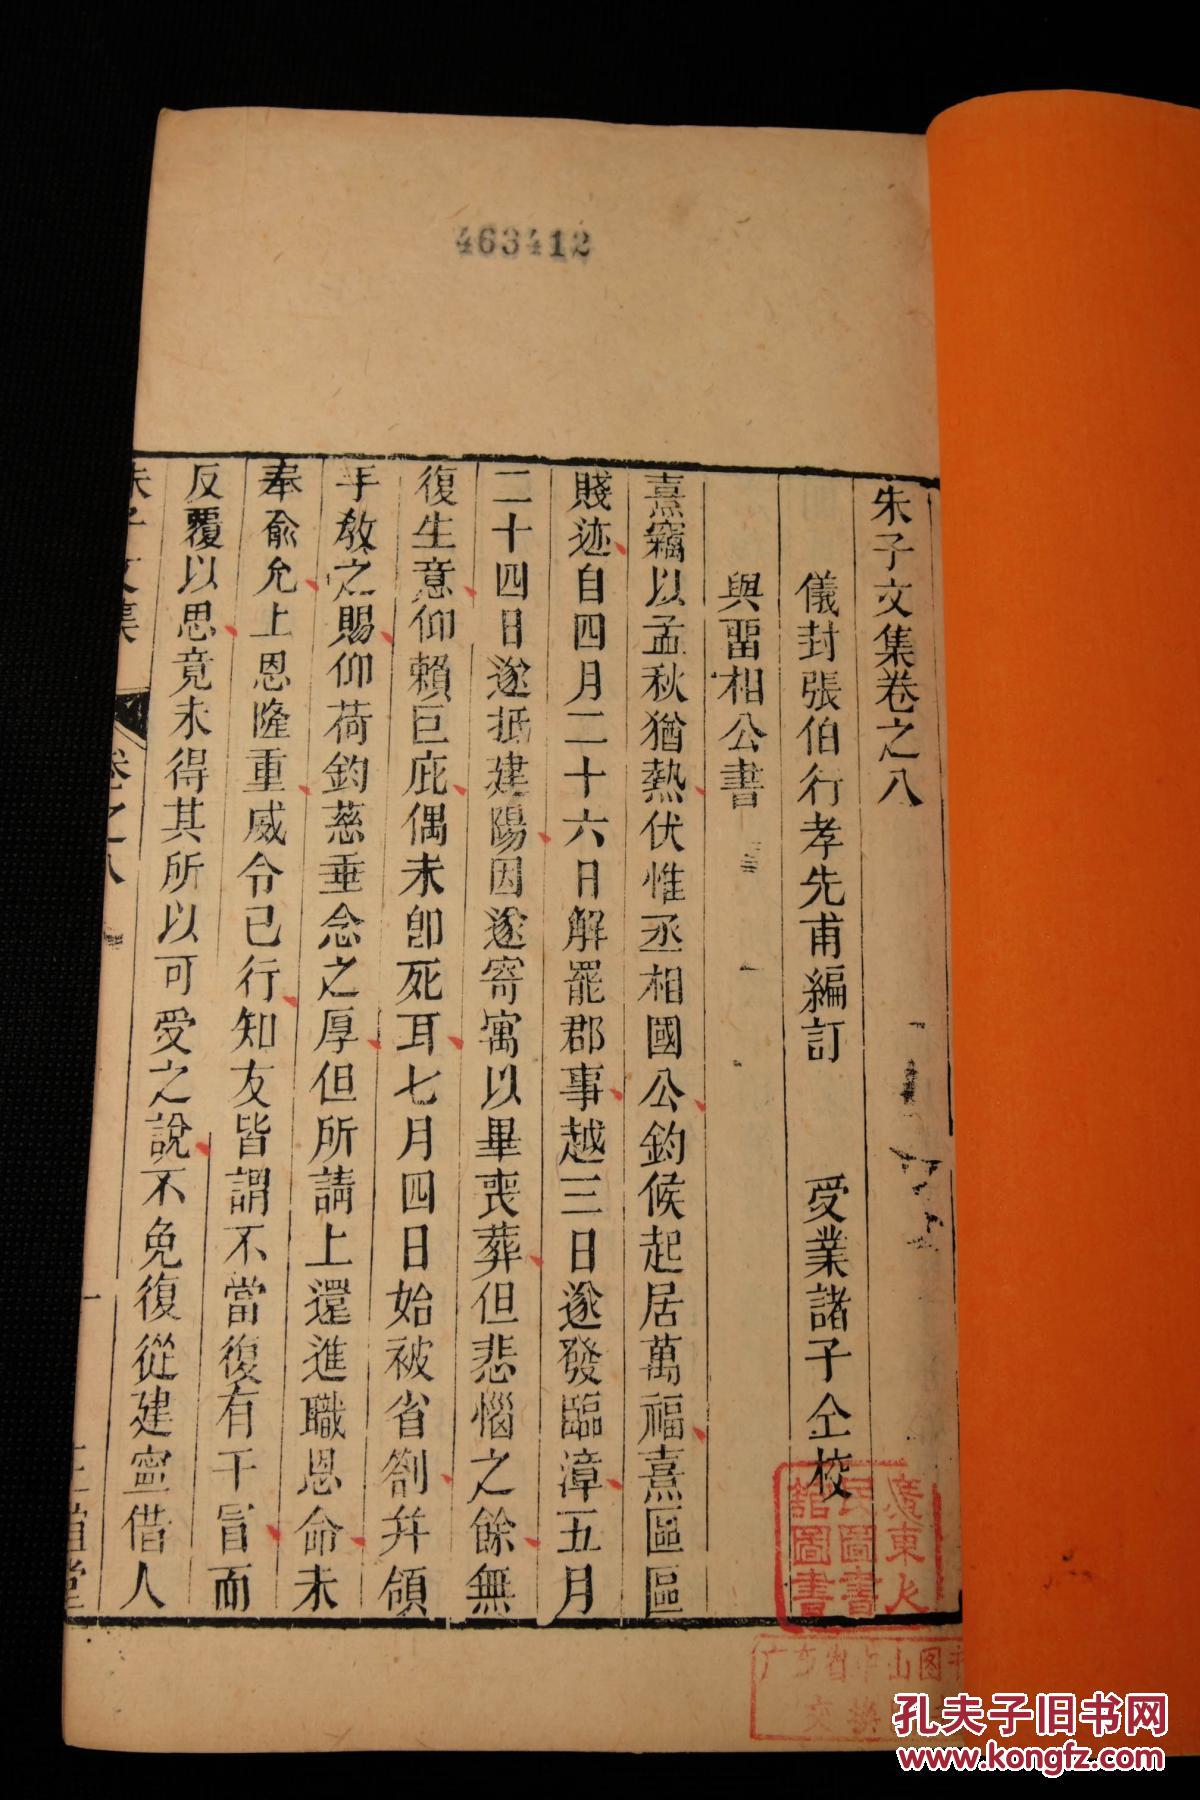 463412
朱子文集卷之八
儀封張伯行孝先甫編訂　受業諸子仝校
與畱相公書
熹竊以孟秋猶熱伏惟丞相國公鈞候起居萬福熹區區
賤迹自四月二十六日解罷郡事越三日遂發臨漳五月
二十四日遂抵建陽因遂寄寓以畢喪葬但悲惱之餘無
復生意仰賴巨庇偶未卽死耳七月四日始被省劄幷領
手敎之賜仰荷鈞慈垂念之厚但所請上還進職恩命未
奉兪允上恩隆重威令已行知友皆謂不當復有干冒而
反覆以思竟未得其所以可受之說不免復從建寧借人
朱子文集
卷之八
一
正誼堂
廣東人
民圖書
舘圖書
广东省中山图书
交換
孔夫子旧书网
www.kongfz.com